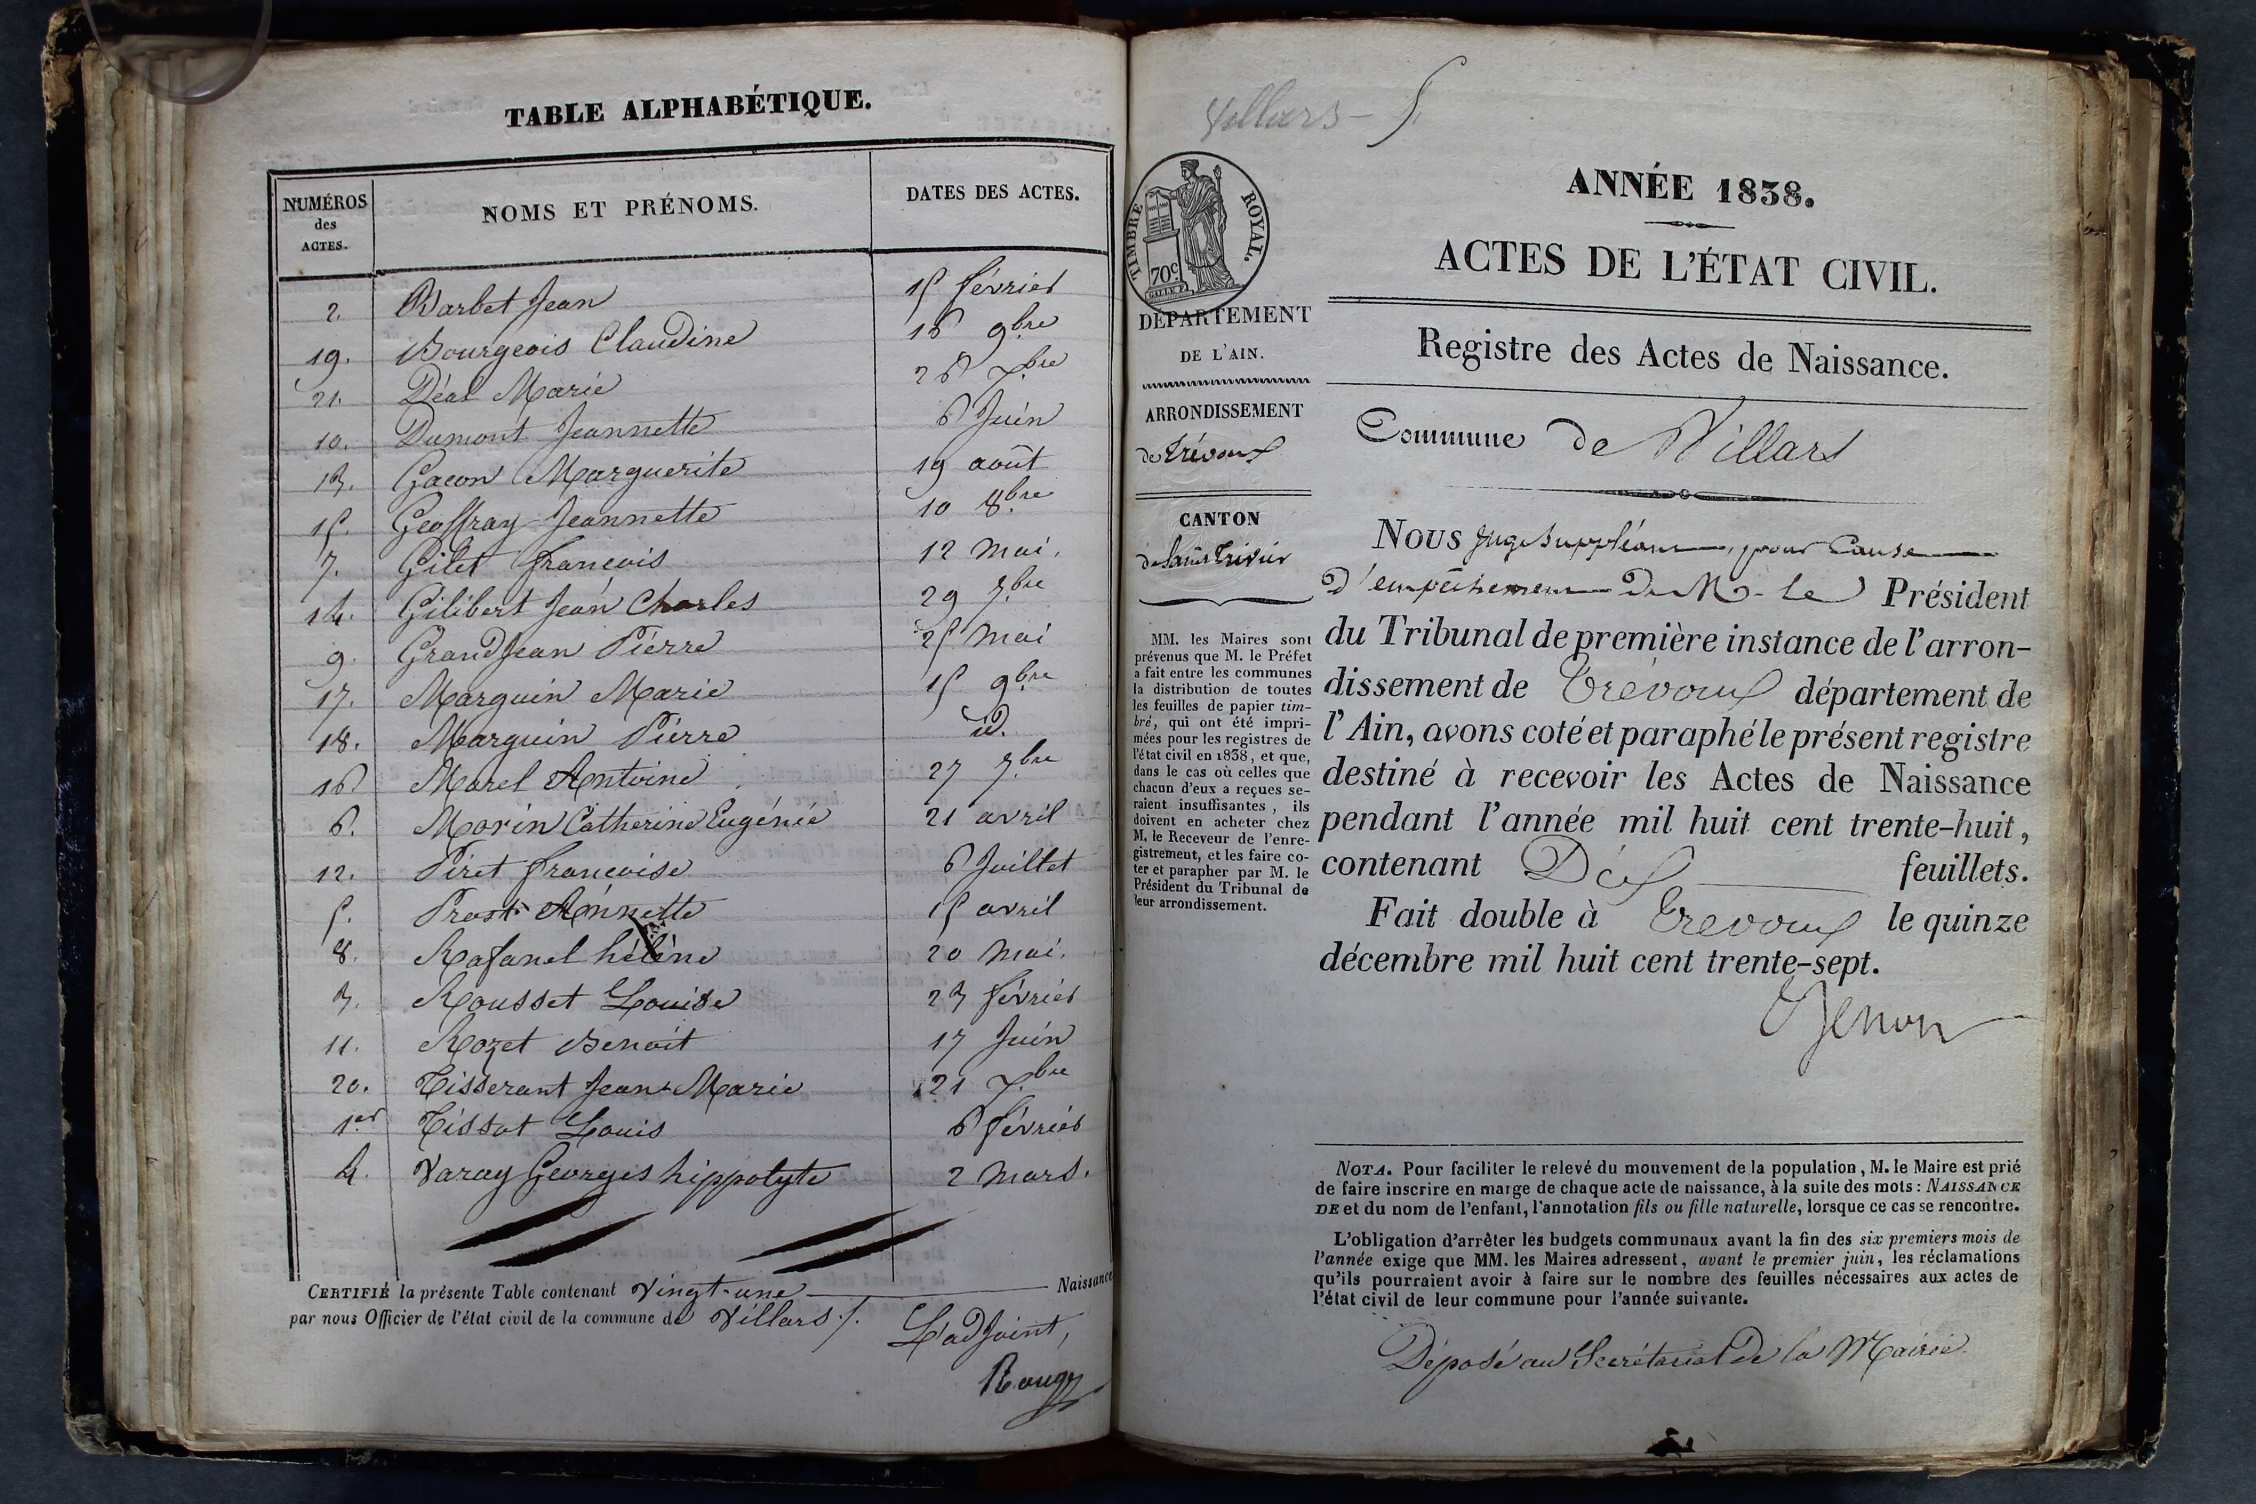 TABLE ALPHABÉTIQUE.
NUMÉROS des ACTES. NOMS ET PRÉNOMS. DATES DES ACTES.
2. Barbet Jean 15 février
19. Bourgeois Claudine 16 9bre
21. Déal Marie 26 Xbre
10. Dumont Jeannette 6 Juin
13. Gacon Marguerite 19 août
15. Geoffray Jeannette 10 8bre
7. Gilet françois 12 mai.
14. Gilibert Jean Charles 29 7bre
9. GrandJean Pierre 25 mai
17. Marguin Marie 15 9bre
18. Marguin Pierre id.
16 Morel Antoine 27 7bre
6. Morin Catherine Eugénie 21 avril
12. Piret françoise 6 Juillet
5. Prost Annette 15 avril
8. Rafanel hélène 20 mai.
3. Rousset Louise 23 février
11. Rozet Benoit 17 Juin
20. Tisserant Jean-Marie 21 Xbre
1er Tissot Louis 6 février
4. Varay Georges hippolyte 2 mars.
CERTIFIÉ la présente Table contenant vingt-une Naissance
par nous Officier de l'état civil de la commune de Villars ./.
L'adjoint,
Rougy
Villars - 5
TIMBRE ROYAL.
70c
DÉPARTEMENT
DE L'AIN.
ARRONDISSEMENT
de Trévoux
CANTON
de Saint Trivier
MM. les Maires sont
prévenus que M. le Préfet
a fait entre les communes
la distribution de toutes
les feuilles de papier tim-
bré, qui ont été impri-
mées pour les registres de
l'état civil en 1838, et que,
dans le cas où celles que
chacun d'eux a reçues se-
raient insuffisantes, ils
doivent en acheter chez
M. le Receveur de l'enre-
gistrement, et les faire co-
ter et parapher par M. le
Président du Tribunal de
leur arrondissement.
ANNÉE 1838.
ACTES DE L'ÉTAT CIVIL.
Registre des Actes de Naissance.
Commune de Villars
NOUS Juge suppléant, pour Cause
d'empêchement de M. le Président
du Tribunal de première instance de l'arron-
dissement de Trévoux département de
l'Ain, avons coté et paraphé le présent registre
destiné à recevoir les Actes de Naissance
pendant l'année mil huit cent trente-huit,
contenant Dix feuillets.
Fait double à Trevoux le quinze
décembre mil huit cent trente-sept.
NOTA. Pour faciliter le relevé du mouvement de la population, M. le Maire est prié
de faire inscrire en marge de chaque acte de naissance, à la suite des mots : NAISSANCE
DE et du nom de l'enfant, l'annotation fils ou fille naturelle, lorsque ce cas se rencontre.
L'obligation d'arrêter les budgets communaux avant la fin des six premiers mois de
l'année exige que MM. les Maires adressent, avant le premier juin, les réclamations
qu'ils pourraient avoir à faire sur le nombre des feuilles nécessaires aux actes de
l'état civil de leur commune pour l'année suivante.
Déposé au Secrétariat de la Mairie.